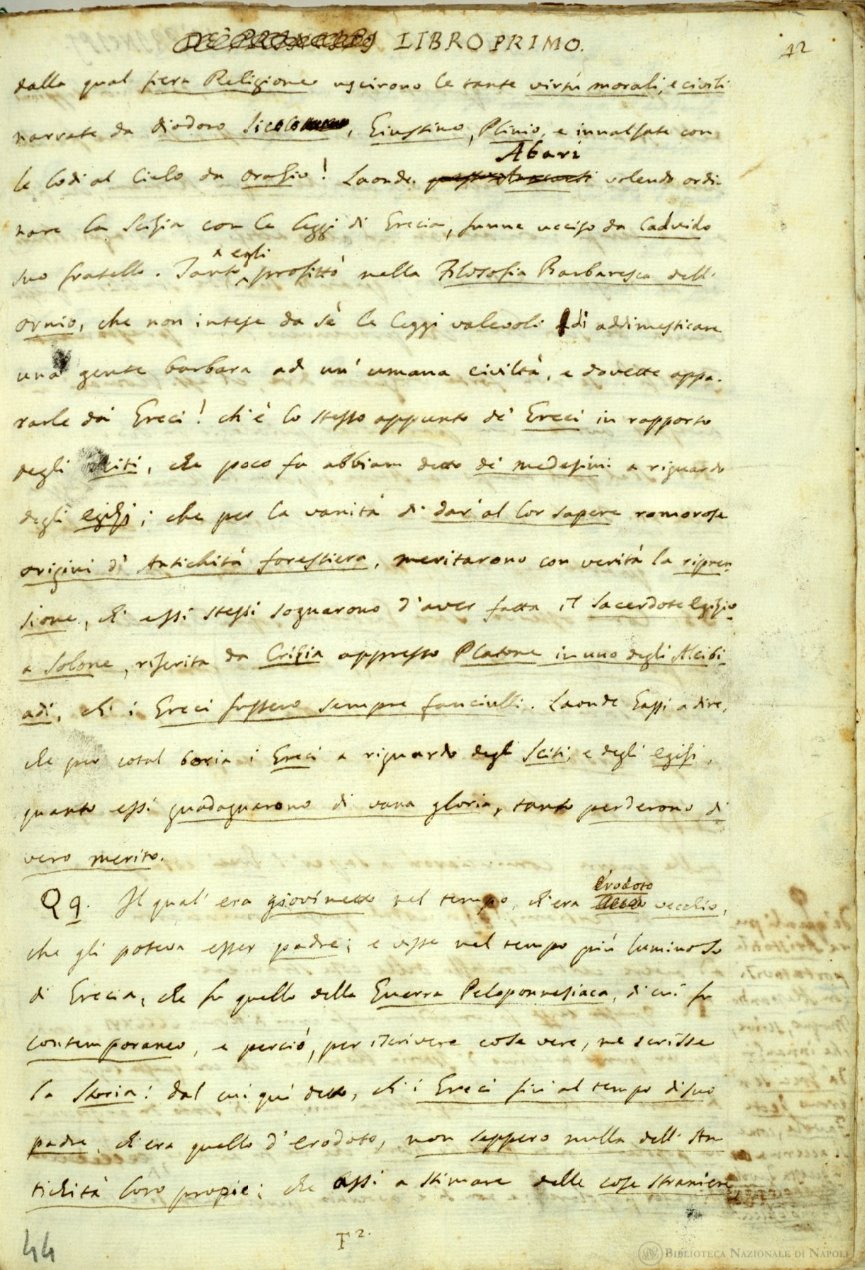 LIBRO PRIMO.
42
dalla qual fiera Religione uscirono le tante virtù morali, e civili
narrate da Diodoro Sicolo, Giustino, Plinio, e innalzate con
Abari
le lodi al Cielo da Orazio! Laonde volendo ordi
nare la Scizia con le leggi di Grecia, funne ucciso da Cadvido
egli
suo fratello. Tanto profittò nella Filosofia Barbaresca dell'
Ornio, che non intese da sè le leggi valevoli di addimesticare
una gente barbara ad un' umana civiltà, e dovette appa-
rarle da' Greci! ch'è lo stesso appunto de' Greci in rapporto
degli Sciti, che poco fa abbiam detto de' medesimi a riguardo
degli egizj; che per la vanità di dar' al lor sapere romorose
origini d' Antichità forestiera, meritarono con verità la ripren
sione, ch' essi stessi sognarono d'aver fatta il Sacerdote egizio
a Solone, riferita da Crizia appresso Platone in uno degli Alcibi
adi, ch' i Greci fussero sempre fanciulli. Laonde hassi a dire,
che per cotal boria i Greci a riguardo degli Sciti, e degli egizj,
quanto essi guadagnarono di vana gloria, tanto perderono di
vero merito.
erodoto
Qq. Il qual' era giovinetto nel tempo, ch'era vecchio,
che gli poteva esser padre; e visse nel tempo più luminoso
di Grecia, che fu quello della Guerra Peloponnesiaca, di cui fu
contemporaneo, e perciò, per iscrivere cose vere, ne scrisse
la Storia: dal cui quì detto, ch' i Greci fin' al tempo di suo
padre, ch'era quello d' erodoto, non seppero nulla dell' An
tichità loro propie; che hassi a stimare delle cose straniere
T 2.
44
BIBLIOTECA NAZIONALE DI NAPOLI